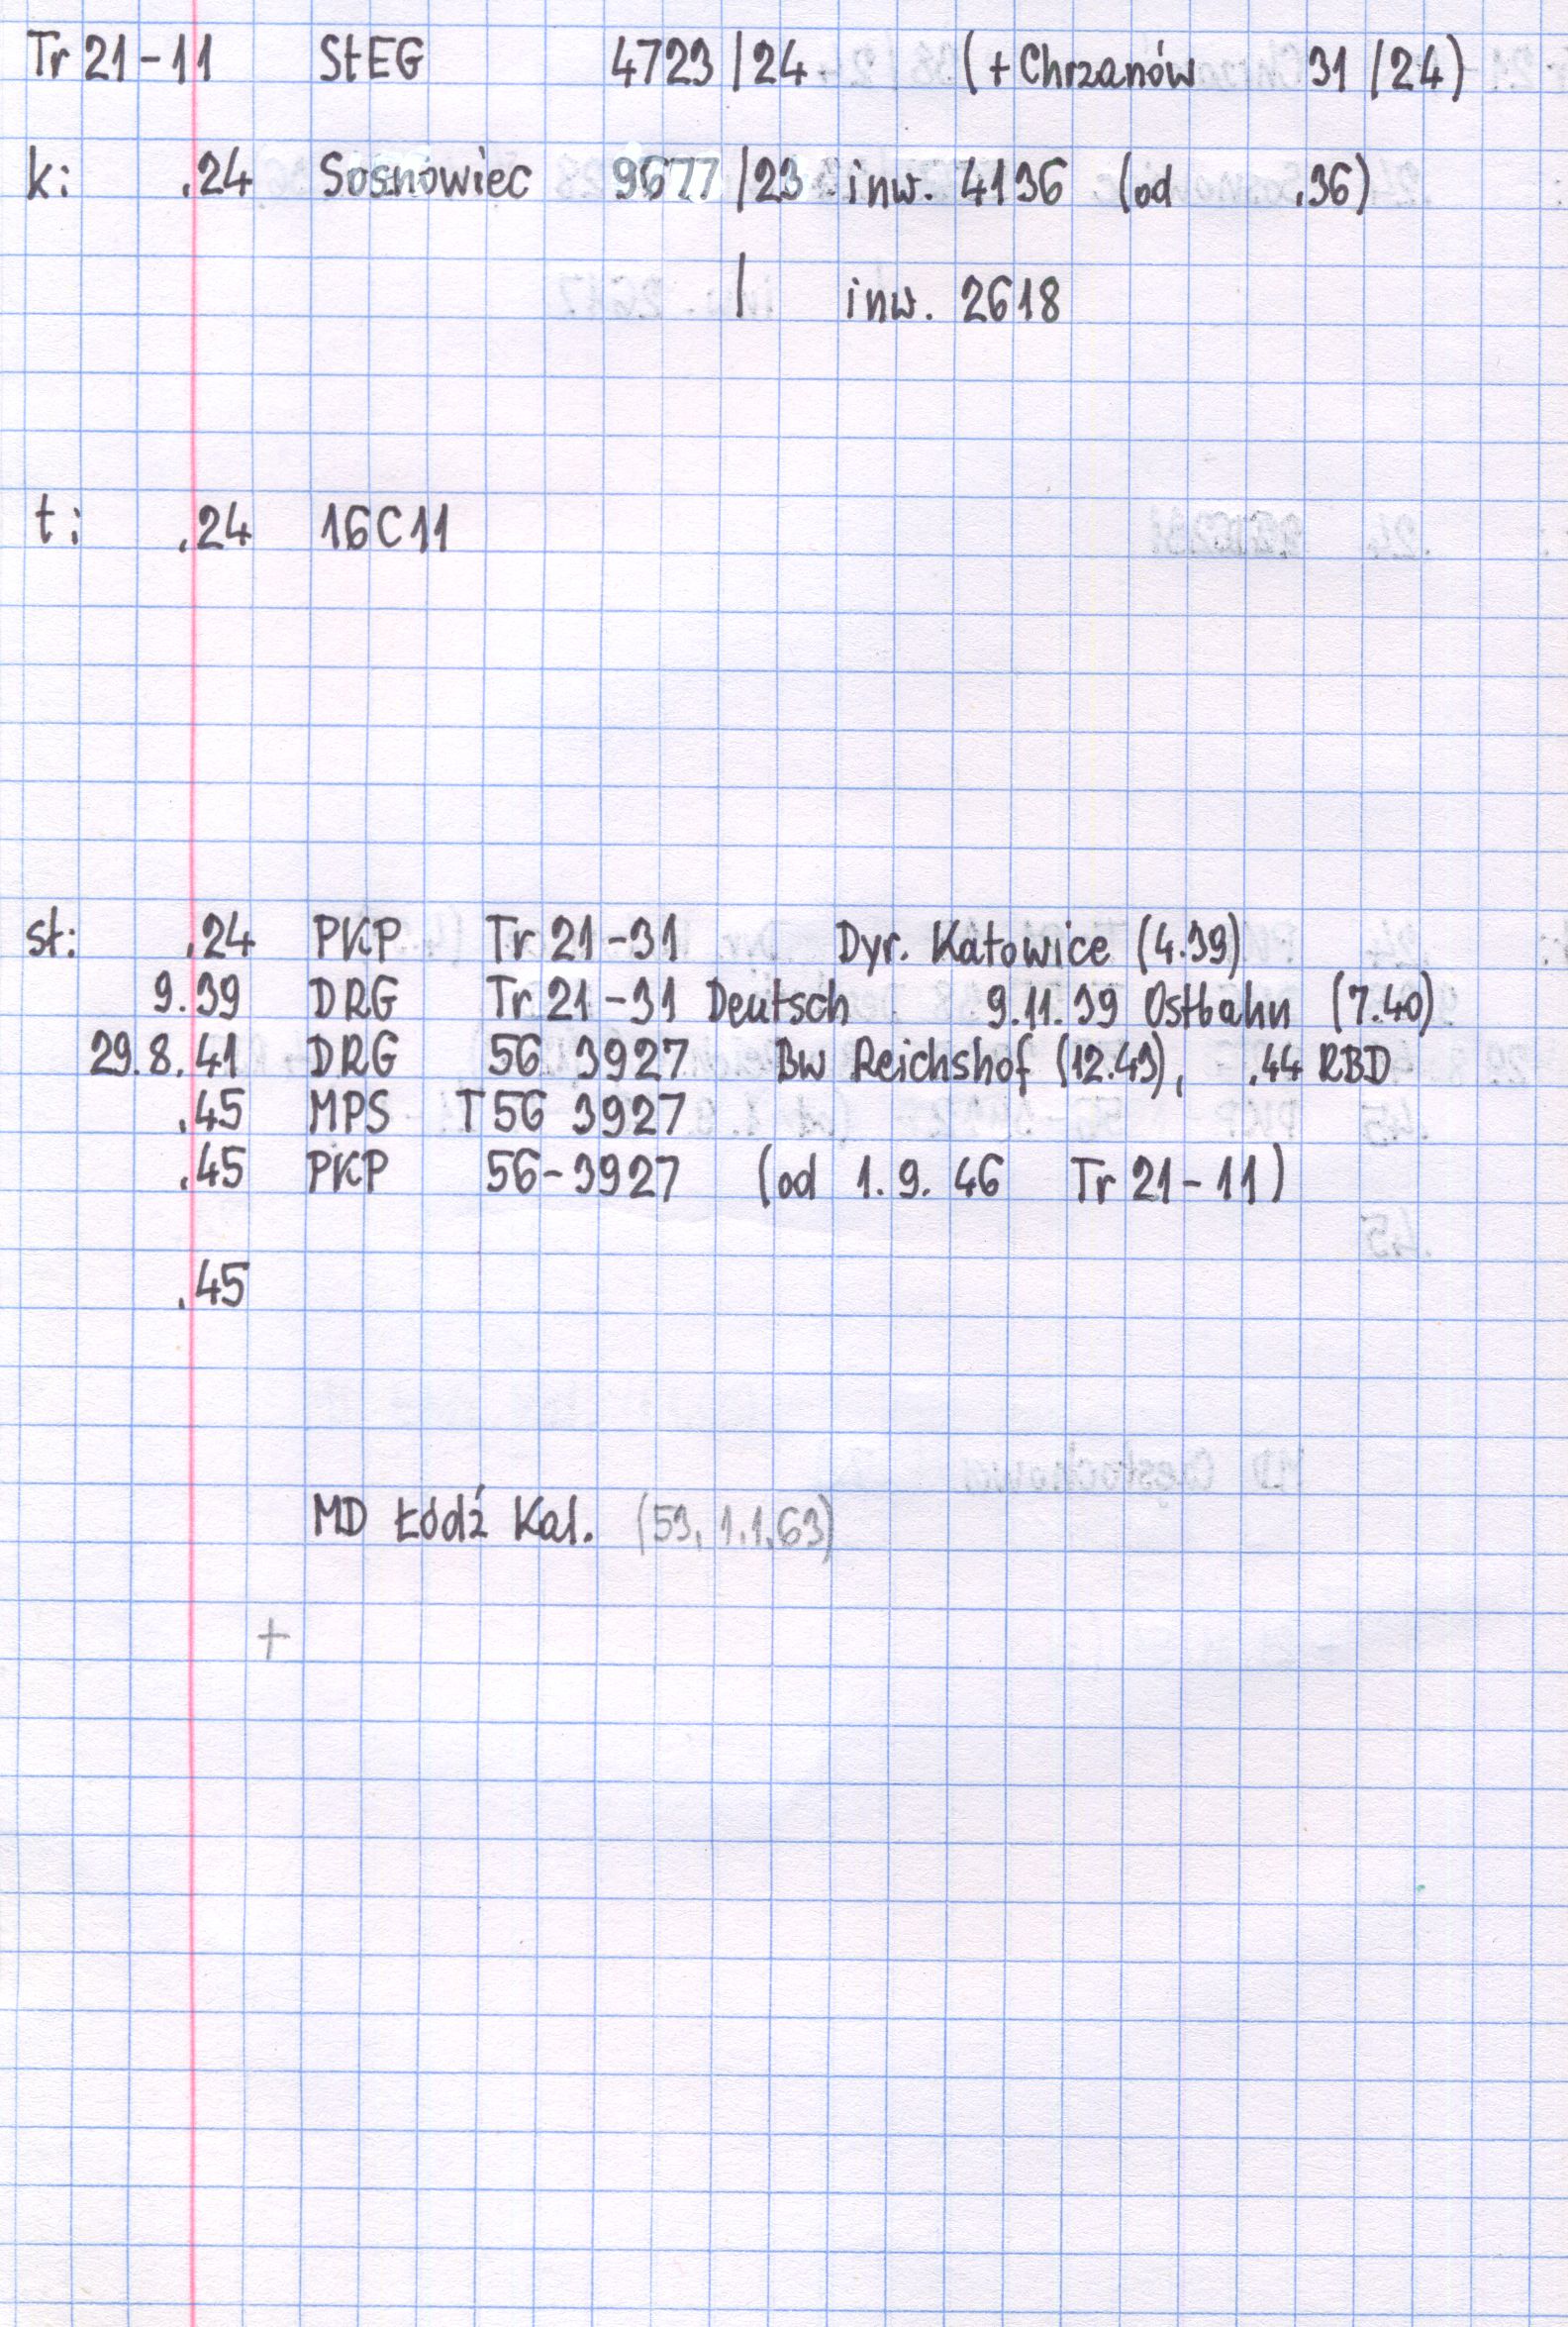 Tr 21-11 StEG 4723/24 (+Chrzanów 31/24)
k: .24 Sosnowiec 9677/23 inw. 4136 (od .36)
/ inw. 2618
t: .24 16C11
st: .24 PKP Tr 21-31 Dyr. Katowice (4.39)
9.39 DRG Tr 21-31 Deutsch 9.11.39 Ostbahn (7.40)
29.8.41 DRG 56 3927 Bw Reichshof (12.43), .44 RBD
.45 MPS T 56 3927
.45 PKP 56-3927 (od 1.9.46 Tr 21-11)
.45
MD Łódź Kal. (53, 1.1.63)
+